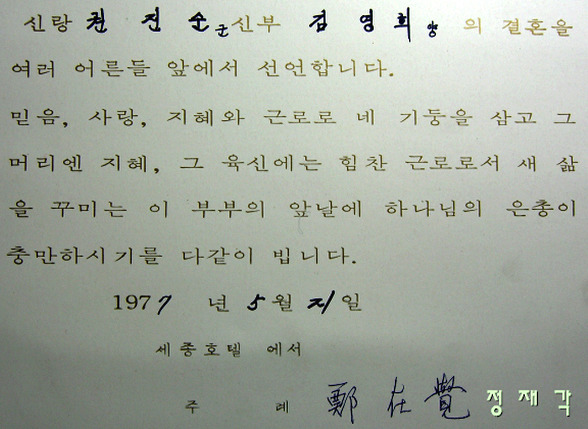 신랑 권 진 순 군 신부 김 영 희 양 의 결혼을
여러 어른들 앞에서 선언합니다.
믿음, 사랑, 지혜와 근로로 네 기둥을 삼고 그
머리엔 지혜, 그 육신에는 힘찬 근로로서 새 삶
을 꾸미는 이 부부의 앞날에 하나님의 은총이
충만하시기를 다같이 빕니다.
1977 년 5 월 21 일
세종호텔 에서
주 례 鄭 在 覺 정재각